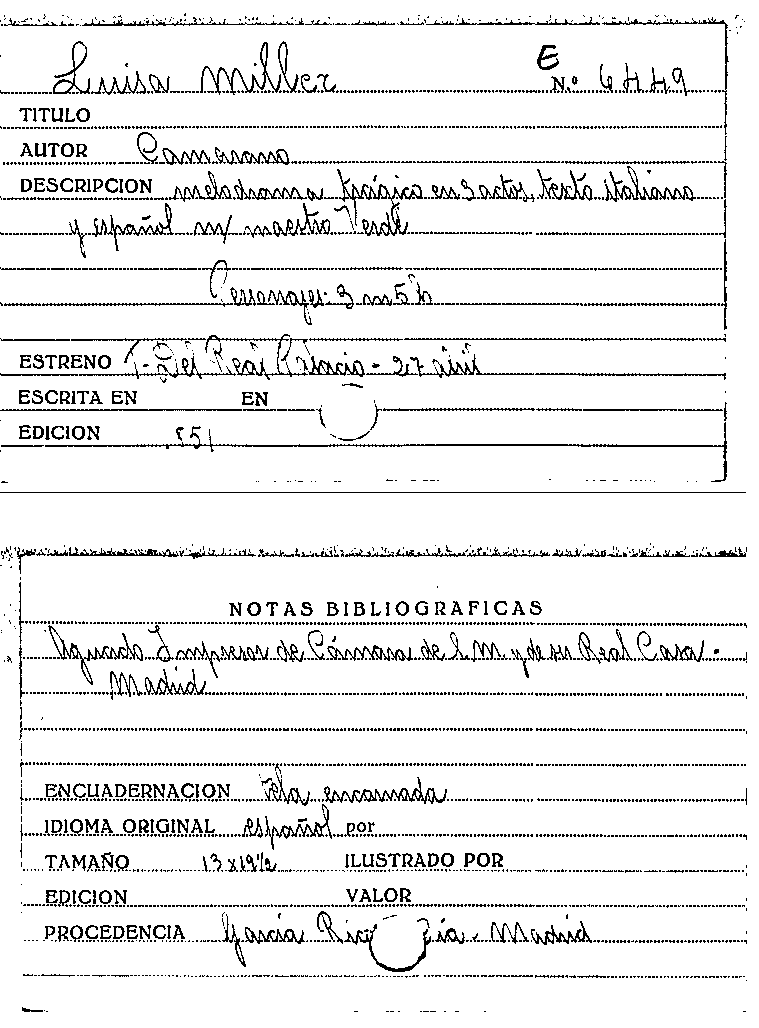 Luisa Miller E
N.º 6449
TITULO
AUTOR Camarano
DESCRIPCION melodrama trágico en 3 actos, texto italiano
y español m/ maestro Verdi
Personajes: 3 m 5 h
ESTRENO T. Del Real Palacio - 27 abril
ESCRITA EN EN
EDICION 851
NOTAS BIBLIOGRAFICAS
Aguado Impresor de Cámara de S. M. y de su Real Casa -
Madrid
ENCUADERNACION tela encarnada
IDIOMA ORIGINAL español por
TAMAÑO 13x19½ ILUSTRADO POR
EDICION VALOR
PROCEDENCIA García Rico Madrid